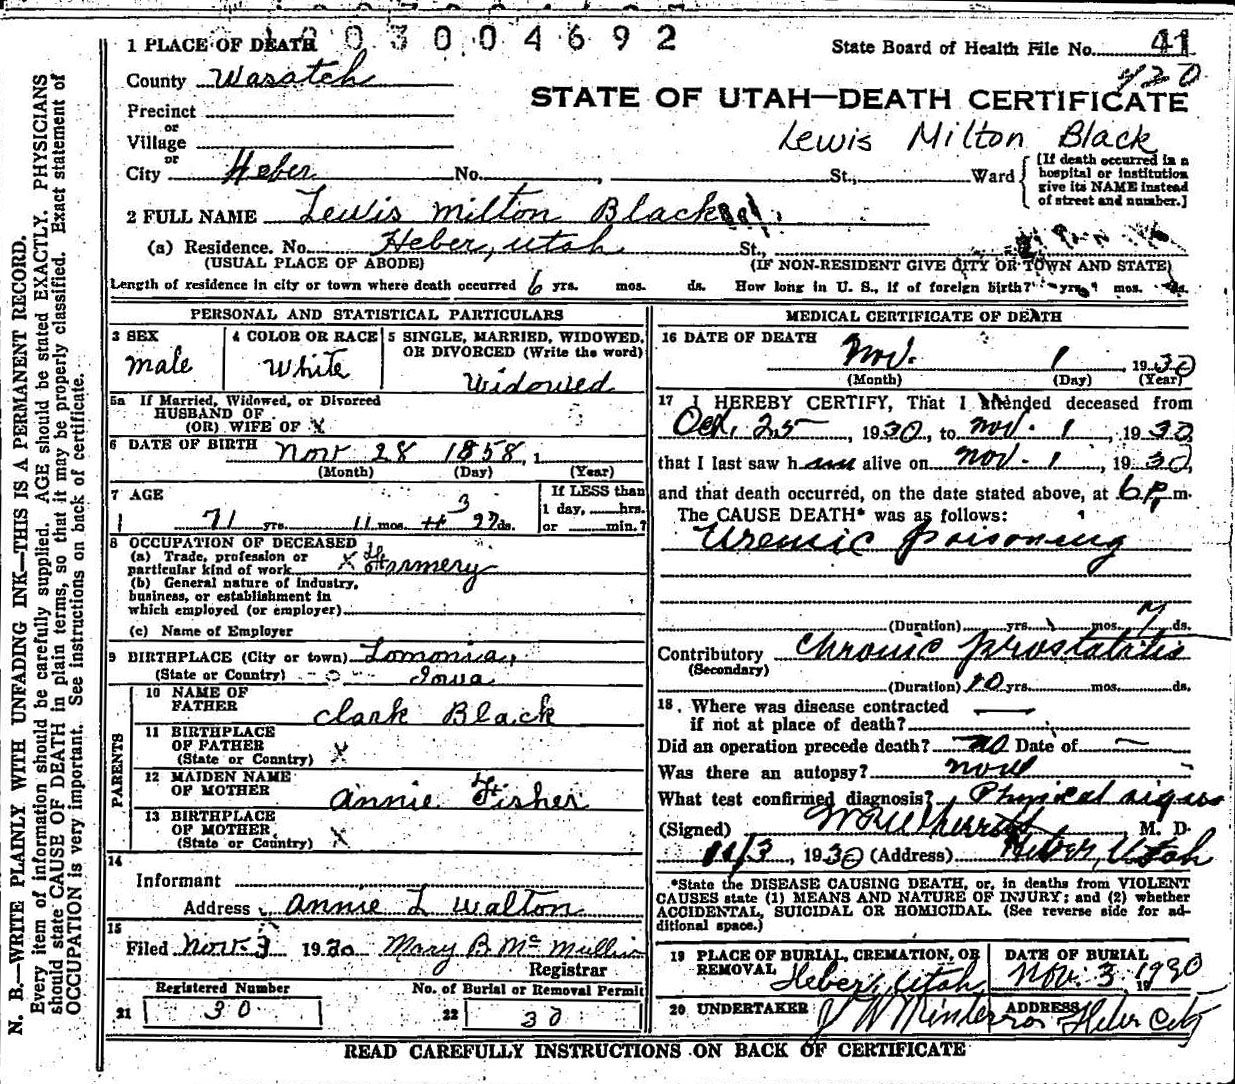 1003004692
1 PLACE OF DEATH
State Board of Health File No. 41
420
County Wasatch
STATE OF UTAH—DEATH CERTIFICATE
Precinct
or
Village
Lewis Milton Black
or
City Heber No. , St., Ward
[If death occurred in a
hospital or institution
give its NAME instead
of street and number.]
2 FULL NAME Lewis Milton Black
(a) Residence. No. Heber, Utah St.,
(USUAL PLACE OF ABODE) (IF NON-RESIDENT GIVE CITY OR TOWN AND STATE)
Length of residence in city or town where death occurred 6 yrs. mos. ds. How long in U. S., if of foreign birth? yrs. mos. ds.
PERSONAL AND STATISTICAL PARTICULARS
3 SEX
Male
4 COLOR OR RACE
White
5 SINGLE, MARRIED, WIDOWED,
OR DIVORCED (Write the word)
Widowed
5a If Married, Widowed, or Divorced
HUSBAND OF
(OR) WIFE OF X
6 DATE OF BIRTH Nov 28 1858, 1
(Month) (Day) (Year)
7 AGE
71 yrs. 11 mos. 3 27 ds.
If LESS than
1 day, hrs.
or min.?
8 OCCUPATION OF DECEASED
(a) Trade, profession or
particular kind of work X Farmery
(b) General nature of industry,
business, or establishment in
which employed (or employer)
(c) Name of Employer
9 BIRTHPLACE (City or town) Lomonia,
(State or Country) Iowa
PARENTS
10 NAME OF
FATHER Clark Black
11 BIRTHPLACE
OF FATHER
(State or Country) X
12 MAIDEN NAME
OF MOTHER Annie Fisher
13 BIRTHPLACE
OF MOTHER
(State or Country) X
14
Informant
Address Annie L Walton
15
Filed Nov. 3 1930 Mary B McMullin
Registrar
Registered Number No. of Burial or Removal Permit
21 30 22 30
MEDICAL CERTIFICATE OF DEATH
16 DATE OF DEATH
Nov. 1 1930
(Month) (Day) (Year)
17 I HEREBY CERTIFY, That I attended deceased from
Oct. 25, 1930, to Nov. 1, 1930
that I last saw him alive on Nov. 1, 1930,
and that death occurred, on the date stated above, at 6 P. m.
The CAUSE DEATH* was as follows:
Uremic Poisoning
(Duration) yrs. mos. 7 ds.
Contributory Chronic prostatitis
(Secondary)
(Duration) 10 yrs. mos. ds.
18. Where was disease contracted
if not at place of death? —
Did an operation precede death? no Date of —
Was there an autopsy? none
What test confirmed diagnosis? Physical signs
(Signed) M. D.
11/3, 1930 (Address) Heber, Utah
*State the DISEASE CAUSING DEATH, or, in deaths from VIOLENT
CAUSES state (1) MEANS AND NATURE OF INJURY; and (2) whether
ACCIDENTAL, SUICIDAL OR HOMICIDAL. (See reverse side for ad-
ditional space.)
19 PLACE OF BURIAL, CREMATION, OR
REMOVAL Heber, Utah
DATE OF BURIAL
Nov. 3, 1930
20 UNDERTAKER ADDRESS
Heber City
READ CAREFULLY INSTRUCTIONS ON BACK OF CERTIFICATE
N. B.—WRITE PLAINLY WITH UNFADING INK—THIS IS A PERMANENT RECORD.
Every item of information should be carefully supplied. AGE should be stated EXACTLY. PHYSICIANS
should state CAUSE OF DEATH in plain terms, so that it may be properly classified. Exact statement of
OCCUPATION is very important. See instructions on back of certificate.